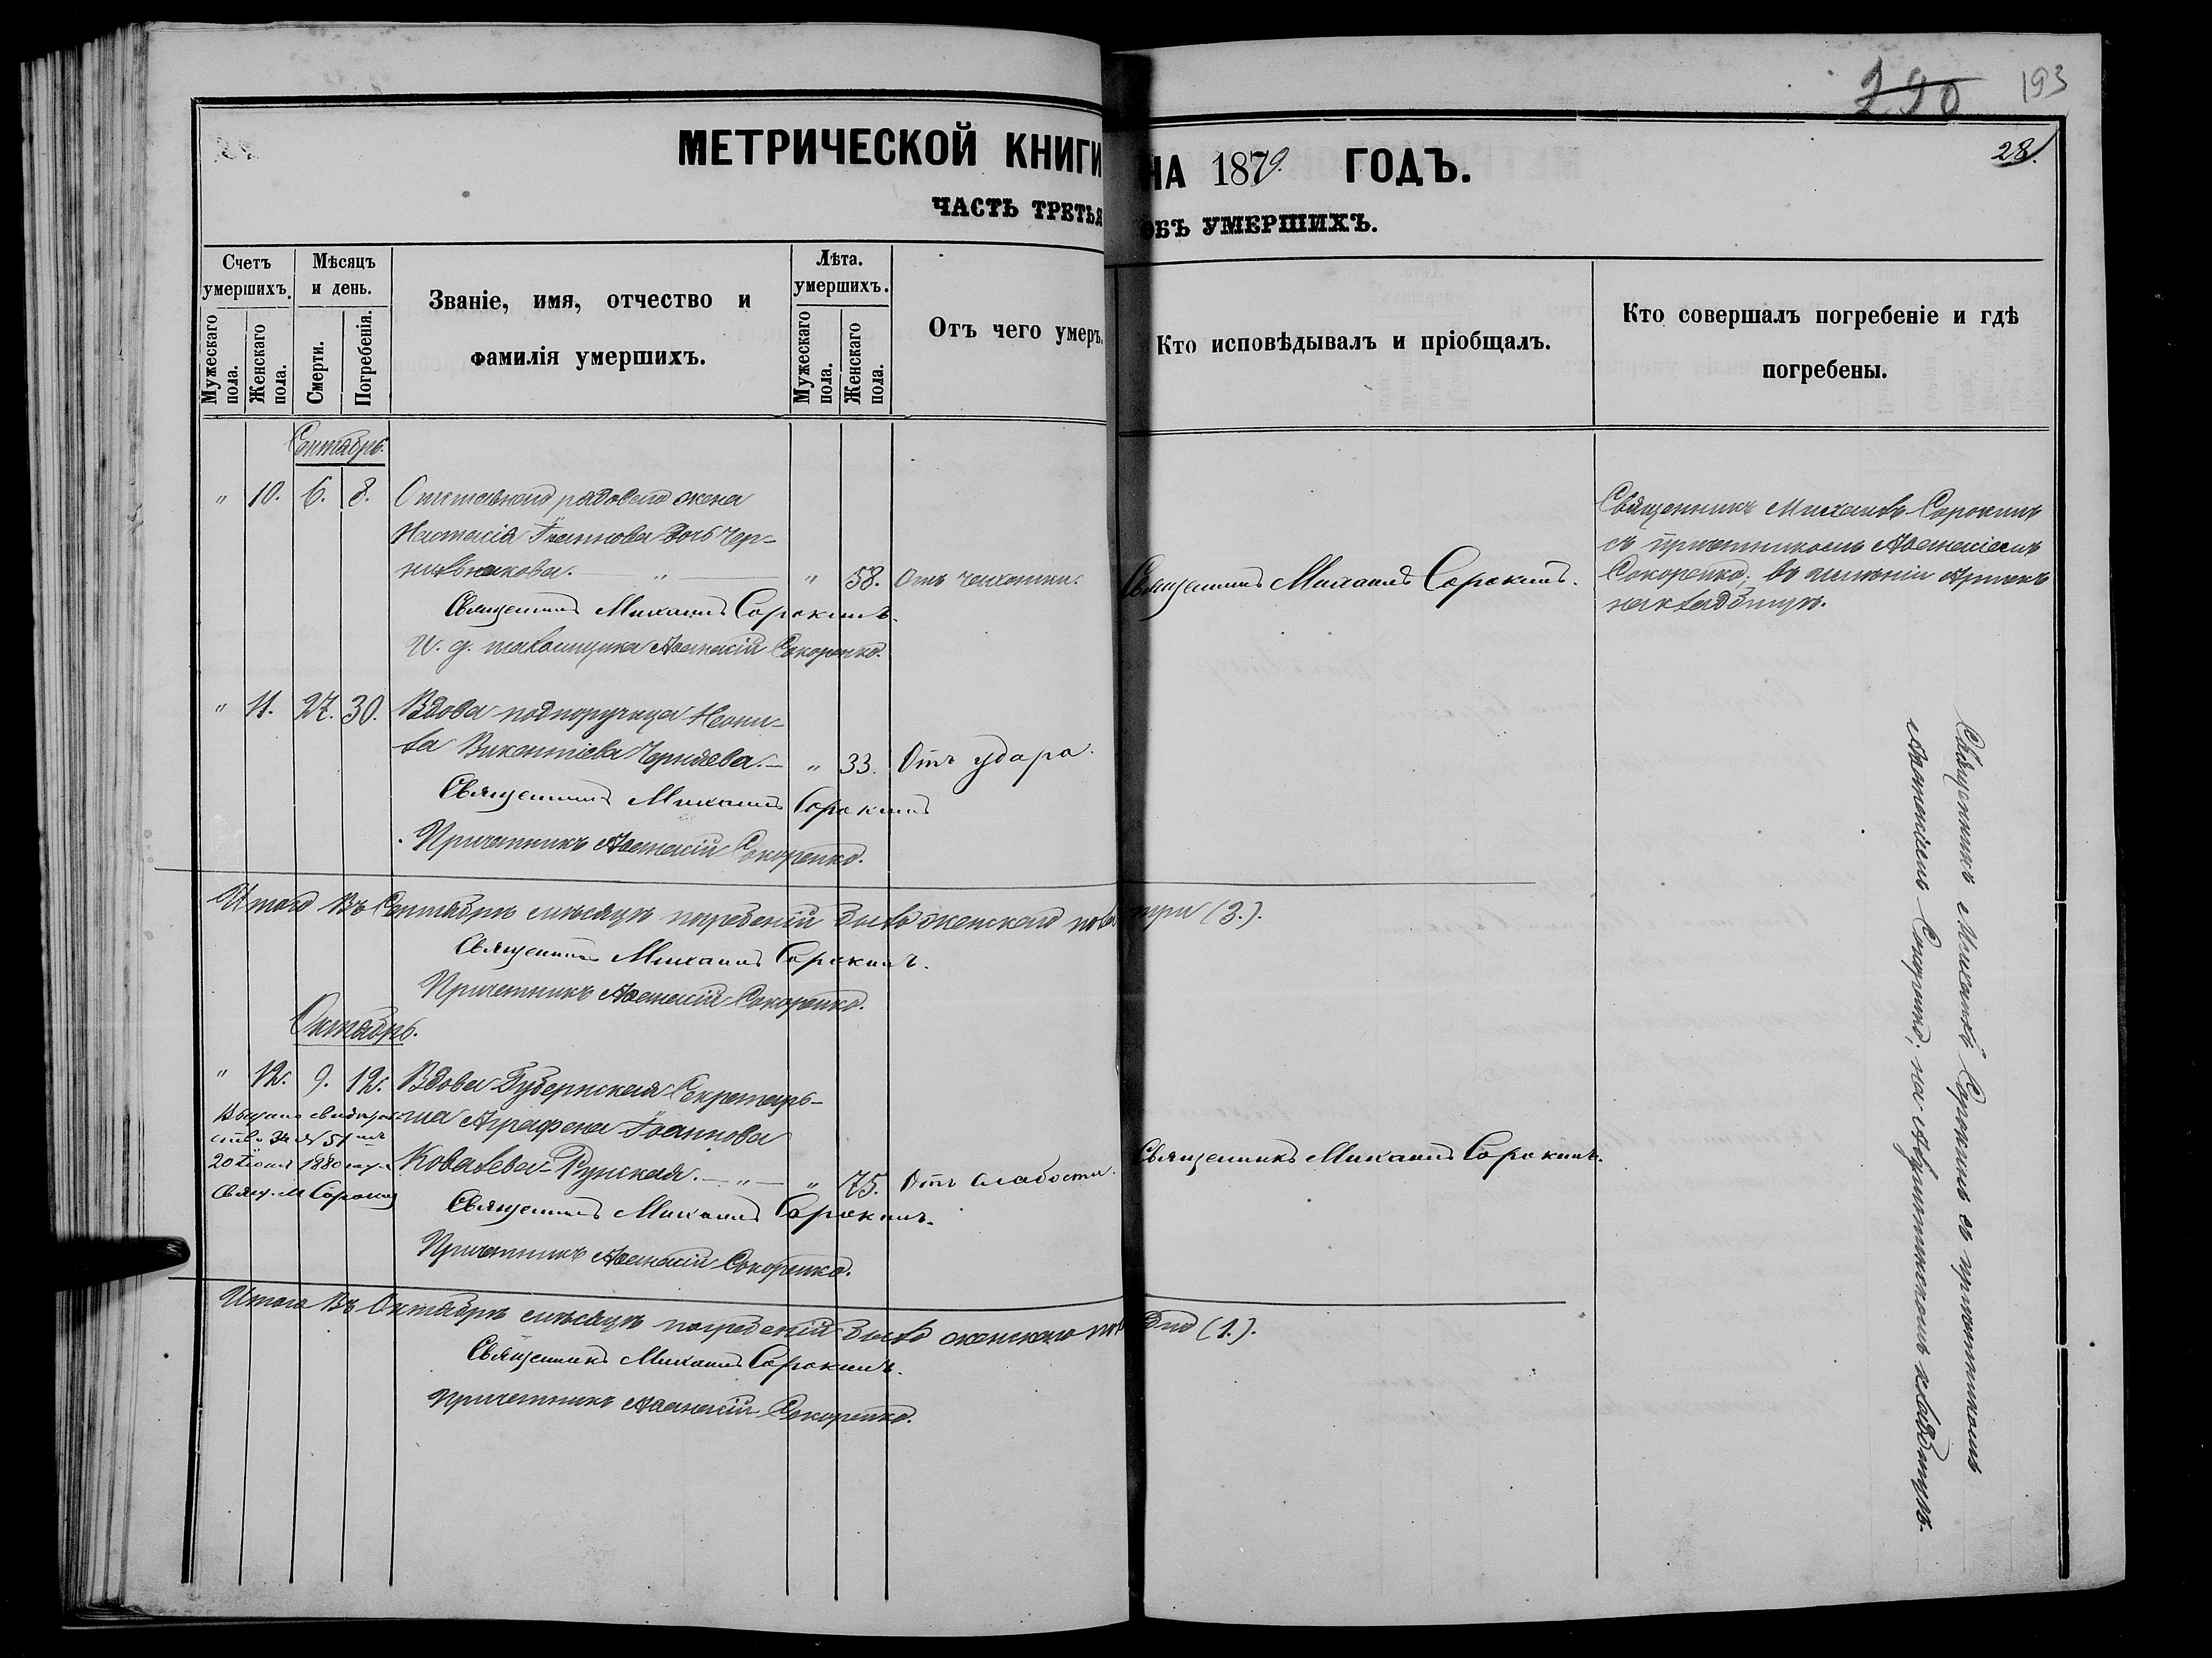 220 193
28.
МЕТРИЧЕСКОЙ КНИГИ НА 1879. ГОДЪ.
ЧАСТЬ ТРЕТЬЯ ОБЪ УМЕРШИХЪ.
Счетъ умершихъ.
Мужескаго пола.
Женскаго пола.
Мѣсяцъ и день.
Смерти.
Погребенія.
Званіе, имя, отчество и
фамилія умершихъ.
Лѣта. умершихъ.
Мужескаго пола.
Женскаго пола.
Отъ чего умеръ.
Кто исповѣдывалъ и пріобщалъ.
Кто совершалъ погребеніе и гдѣ
погребены.
Сентябрь.
" 10. 6. 8. Отставнаго рядоваго жена
Настасія Іоаннова дочь Чер-
нильникова. — " — " 58. Отъ чахотки.
Священникъ Михаилъ Сорокинъ.
И. д. псаломщика Аѳанасій Сокоренко.
Священникъ Михаилъ Сорокинъ.
Священникъ Михаилъ Сорокинъ
съ причетникомъ Аѳанасіемъ
Сокоренко, въ имѣніи Артекъ
на кладбищѣ.
" 11. 27. 30. Вдова подпоручица Неони-
ла Викентіева Черняева. — " 33. Отъ удара.
Священникъ Михаилъ Сорокинъ
Причетникъ Аѳанасій Сокоренко.
Итого въ Сентябрѣ мѣсяцѣ погребеній было женскаго пола три (3.).
Священникъ Михаилъ Сорокинъ.
Причетникъ Аѳанасій Сокоренко.
Октябрь.
" 12. 9. 12. Вдова Губернская Секретарь-
ша Аграфена Іоаннова
Ковалева-Рунская. — " — " 75. Отъ слабости.
Выдано свидѣтель-
ство за № 51 мъ
20 Іюня 1880 года
Свящ. М Сорокин
Священникъ Михаилъ Сорокинъ.
Причетникъ Аѳанасій Сокоренко.
Священникъ Михаилъ Сорокинъ.
Священникъ Михаилъ Сорокинъ съ причетникомъ
Аѳанасіемъ Сокоренко, на кладбищѣ.
Итого въ Октябрѣ мѣсяцѣ погребеній было женскаго пола одно (1.).
Священникъ Михаилъ Сорокинъ.
Причетникъ Аѳанасій Сокоренко.